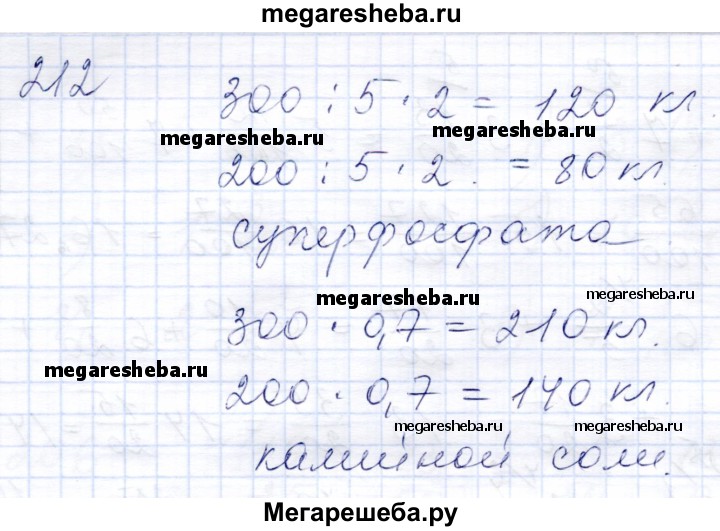 megaresheba.ru
212
300 : 5 · 2 = 120 кл.
megaresheba.ru megaresheba.ru
200 : 5 · 2 = 80 кл.
суперфосфата
megaresheba.ru megaresheba.ru
300 · 0,7 = 210 кл.
megaresheba.ru
200 · 0,7 = 140 кл.
megaresheba.ru megaresheba.ru
калийной соли.
Мегарешеба.ру